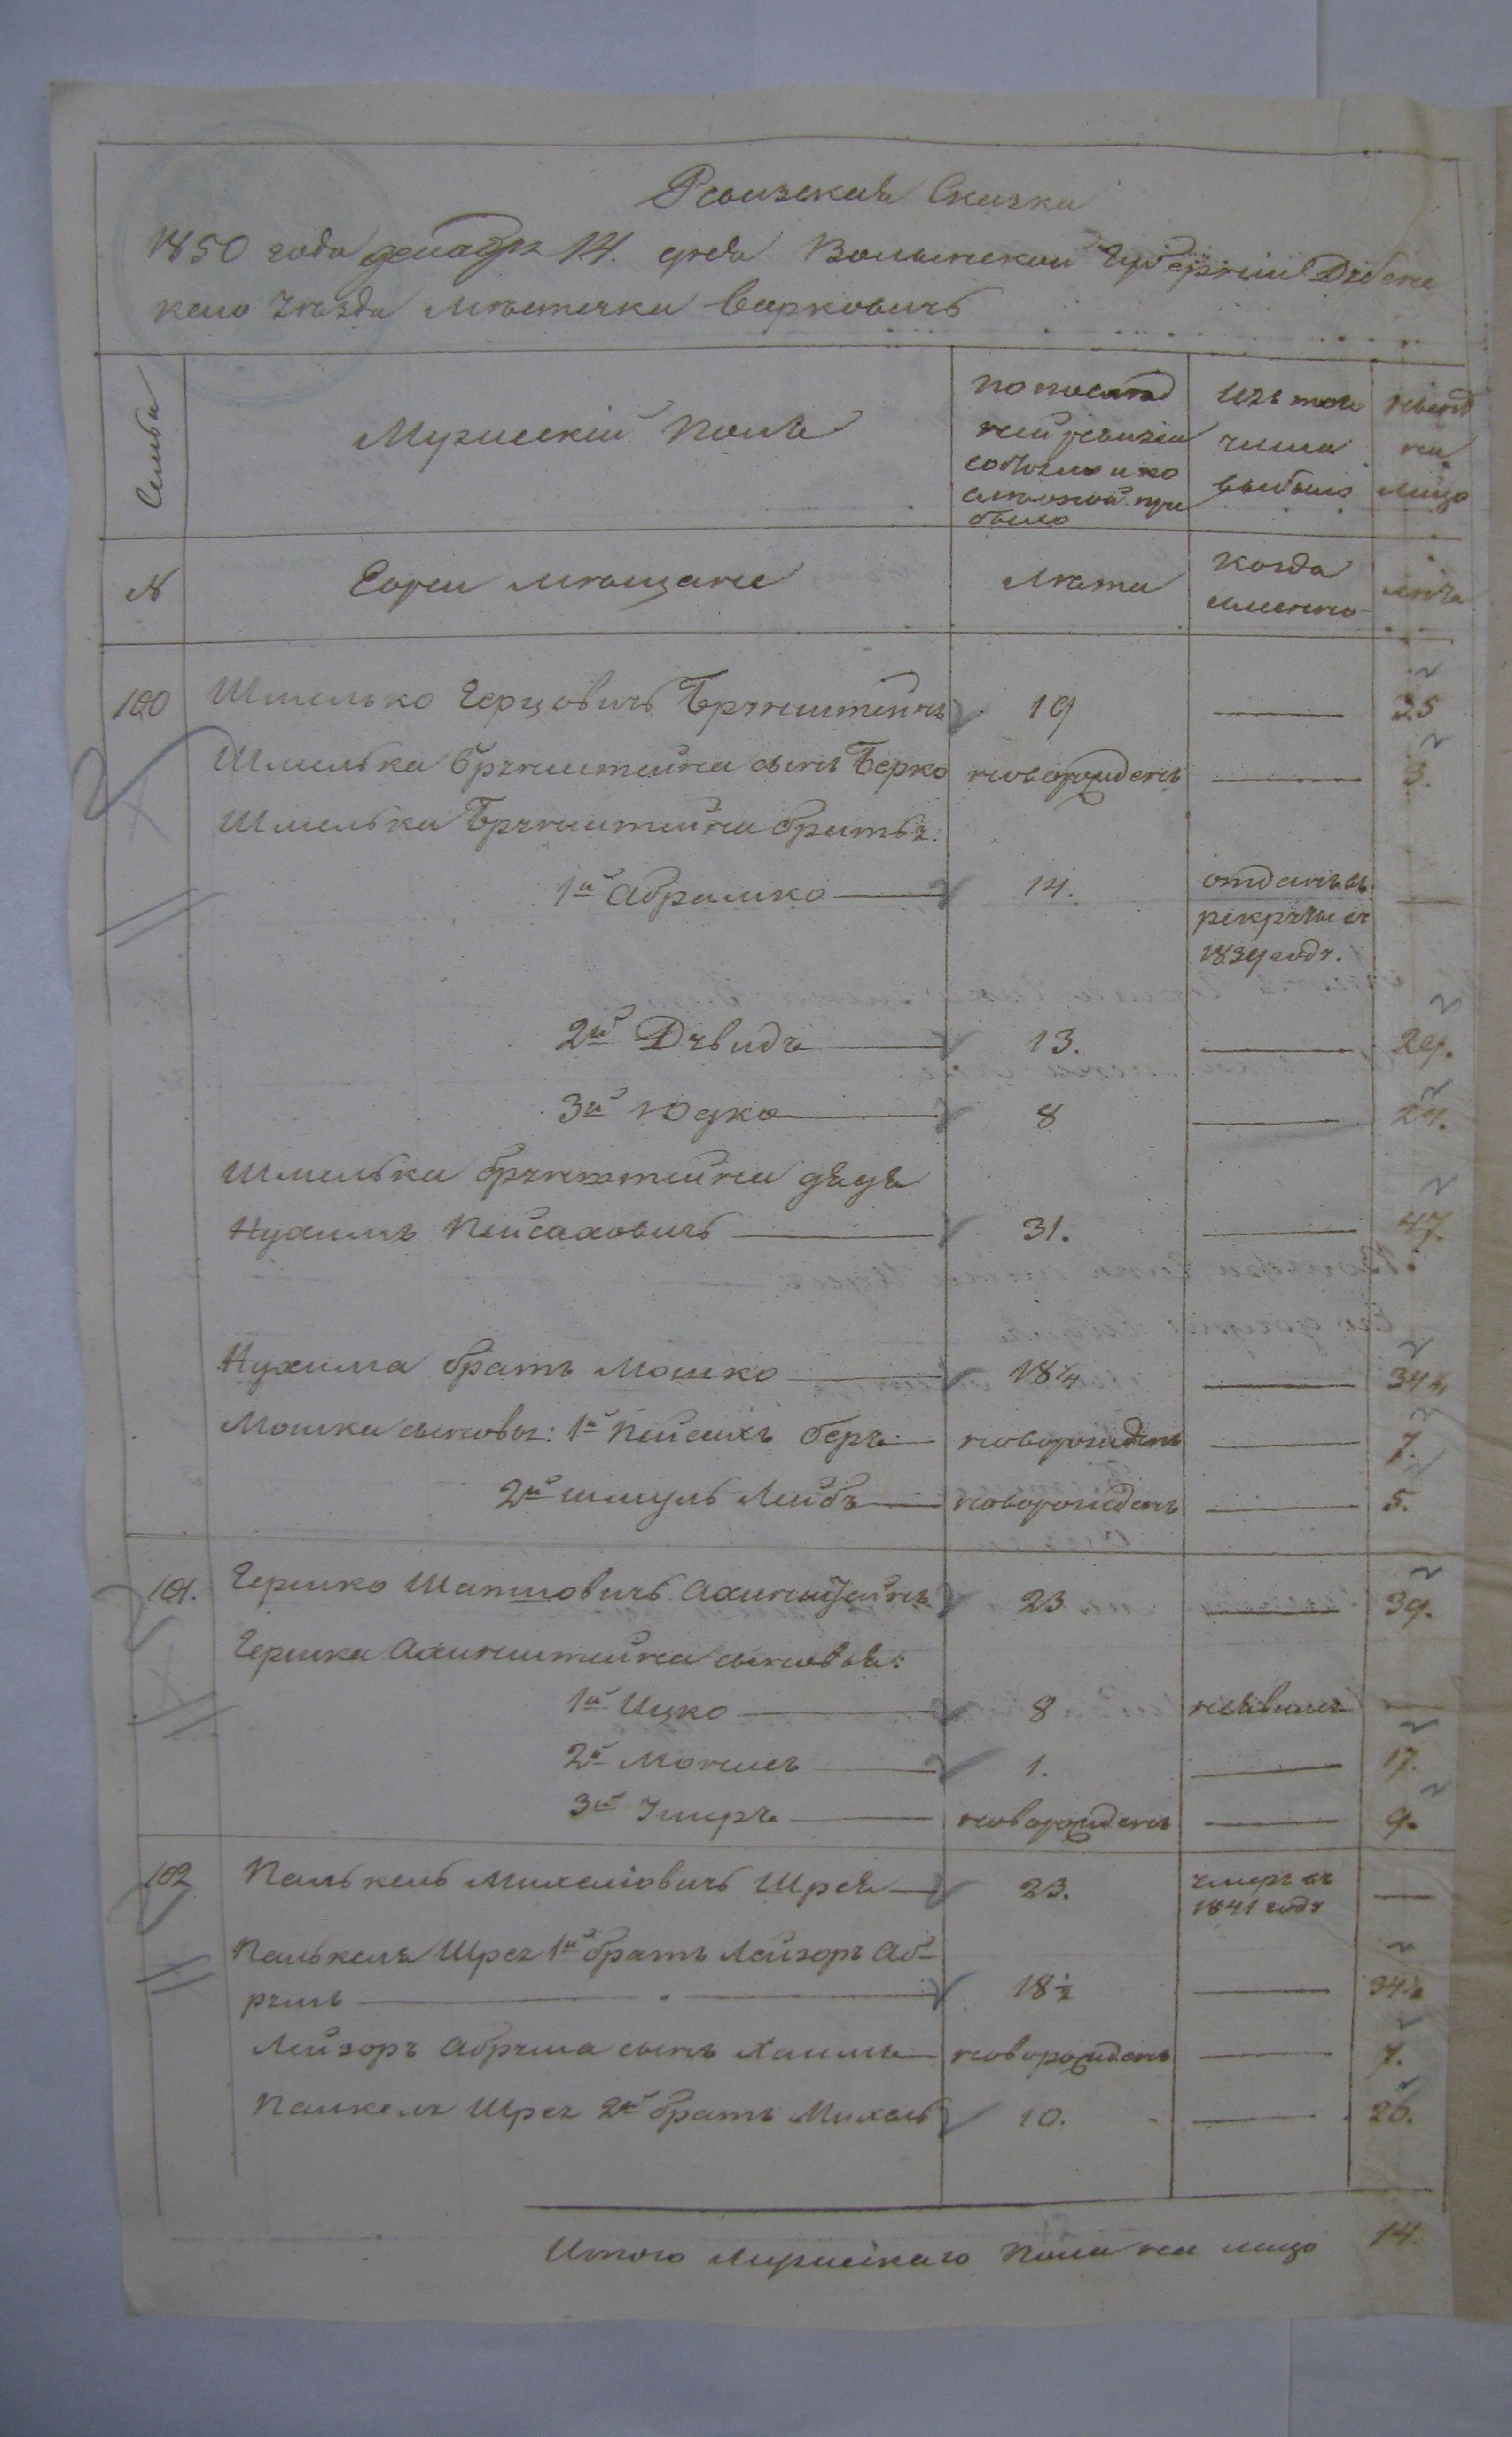 Ревизская Сказка
1850 года декабря 14. дня Волынской Губерніи Дубенс
каго уѣзда мѣстечка Варковичъ
Семьи
Мужескій Полъ
по послѣд
ней ревизіи
состояло и по
слѣ оной при
было
Изъ того
числа
выбыло
нынѣ
на
лицо
№
Евреи мѣщане
Лѣта
когда
именно
лѣта
100 Шмилько Герцовичъ Брунштейнъ 19 — 35
Шмилька Брунштейна сынъ Берко новорожденъ — 3.
Шмилька Брунштейна братья:
1й Абрамко — 14. отданъ въ —
рекруты въ
1839 году.
2й Дувидъ — 13. — 29.
3й Юдко — 8 — 24.
Шмилька Брунштейна дядя
Нухимъ Пейсаховичъ — 31. — 47.
Нухима братъ Мошко — 18¼ — 34¼
Мошка сыновья: 1й Пейсахъ Беръ — новорожденъ — 7.
2й Шмуль Лейбъ — новорожденъ — 5.
101. Гершко Шапшовичъ Ахинштейнъ 23 — 39.
Гершка Ахинштейна сыновья:
1й Ицко — 8 неявился —
2й Мотель — 1. — 17.
3й Умеръ — новорожденъ — 9.
102 Палькель Михелiовичъ Шрея — 23. умеръ въ —
1841 году
Палькеля Шрея 1й братъ Лейзоръ Аб-
румъ — 18½ — 34½
Лейзоръ Абрума сынъ Хаимъ — новорожденъ — 7.
Палкеля Шрея 2й братъ Михель 10. — 26.
Итого мужескаго пола на лицо 14.